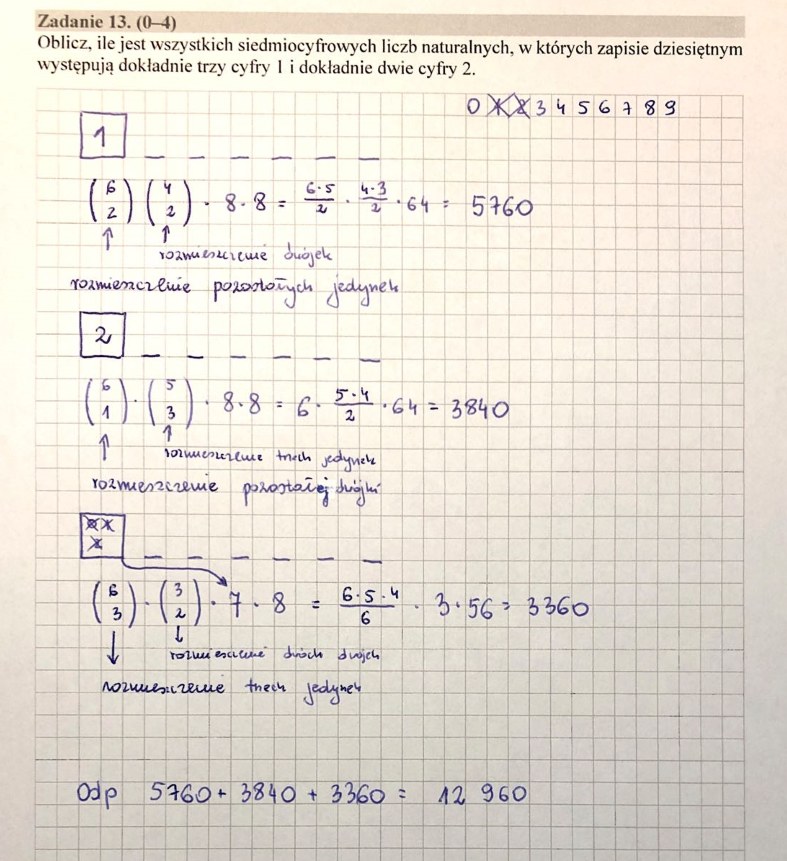 Zadanie 13. (0–4)
Oblicz, ile jest wszystkich siedmiocyfrowych liczb naturalnych, w których zapisie dziesiętnym
występują dokładnie trzy cyfry 1 i dokładnie dwie cyfry 2.
0 1 2 3 4 5 6 7 8 9
1 _ _ _ _ _ _
(6 2) (4 2) · 8 · 8 = 6·5/2 · 4·3/2 · 64 = 5760
↑ ↑
rozmieszczenie dwójek
rozmieszczenie pozostałych jedynek
2 _ _ _ _ _ _
(6 1) · (5 3) · 8 · 8 = 6 · 5·4/2 · 64 = 3840
↑ ↑
rozmieszczenie trzech jedynek
rozmieszczenie pozostałej dwójki
_ _ _ _ _ _
(6 3) · (3 2) · 7 · 8 = 6·5·4/6 · 3 · 56 = 3360
↓ ↓
rozmieszczenie dwóch dwójek
rozmieszczenie trzech jedynek
Odp 5760 + 3840 + 3360 = 12 960